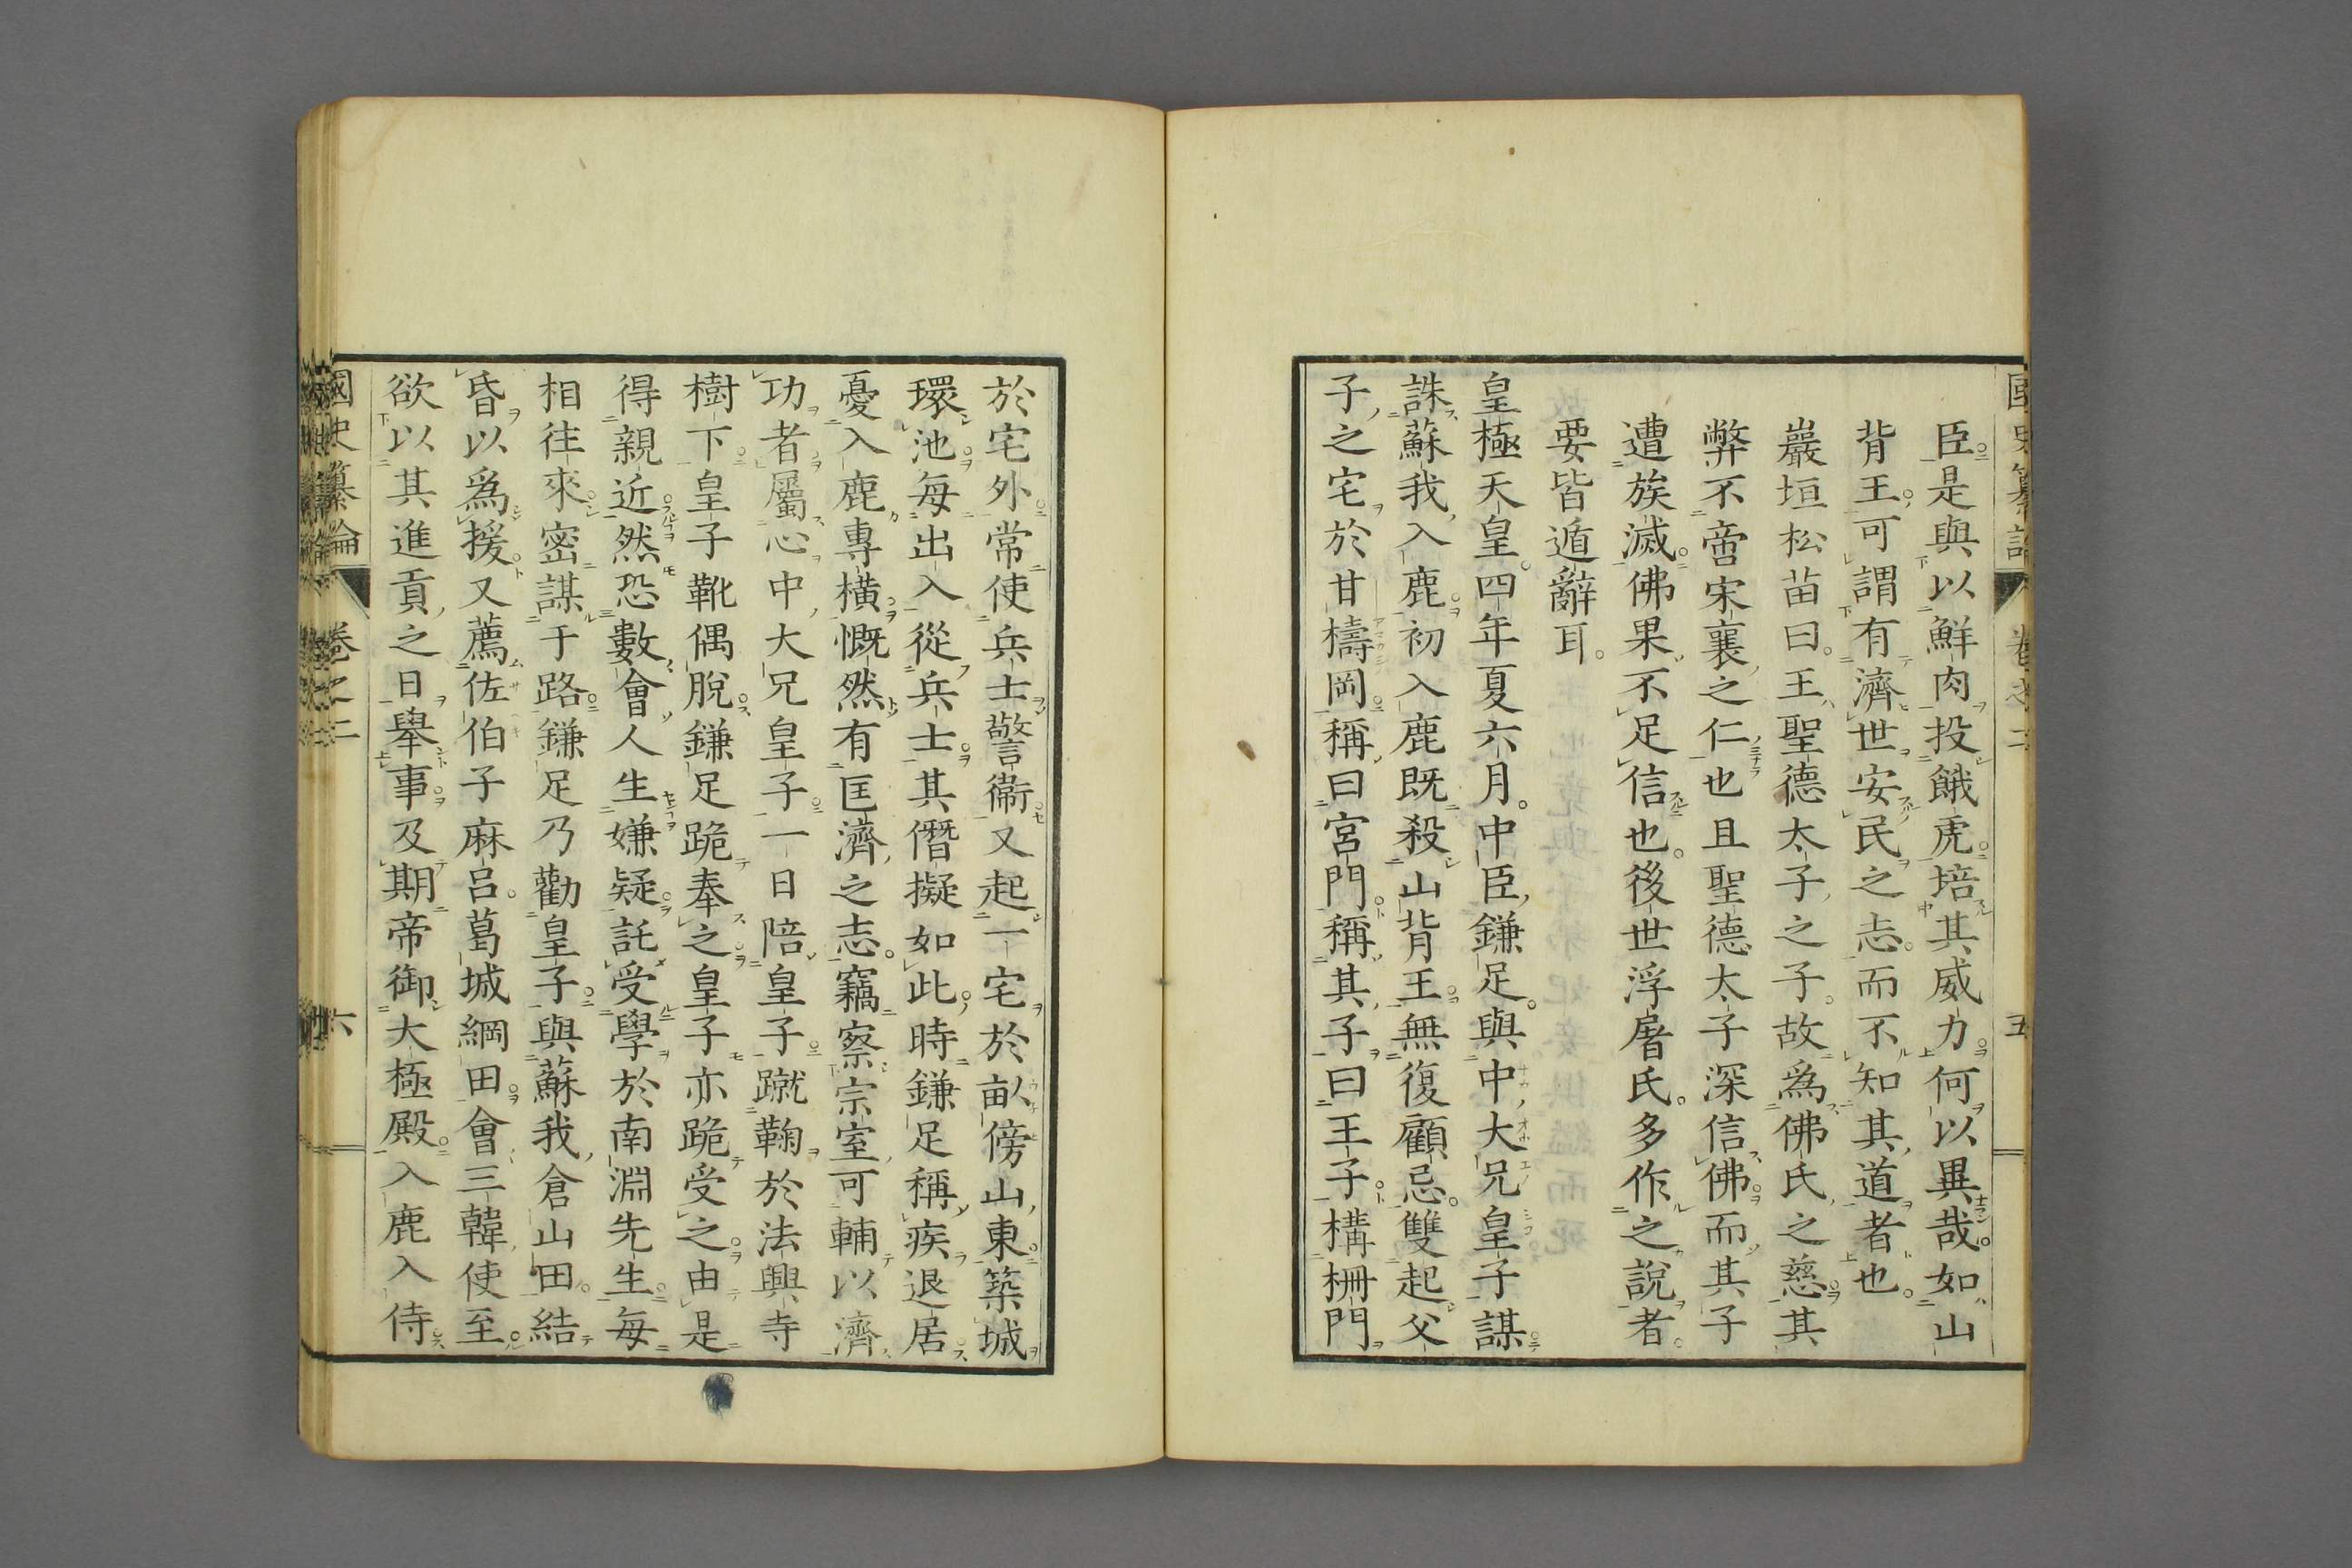 臣是與以鮮肉投餓虎培其威力何以異哉如山
背王可謂有濟世安民之志而不知其道者也
巖垣松苗曰王聖德太子之子故爲佛氏之慈其
弊不啻宋襄之仁也且聖德太子深信佛而其子
遭族滅佛果不足信也後世浮屠氏多作之說者
要皆遁辭耳
皇極天皇四年夏六月中臣鎌足與中大兄皇子謀
誅蘇我入鹿初入鹿既殺山背王無復顧忌雙起父
子之宅於甘檮岡稱曰宮門稱其子曰王子構柵門
於宅外常使兵士警衞又起一宅於畝傍山東築城
環池每出入從兵士其僭擬如此時鎌足稱疾退居
憂入鹿專橫慨然有匡濟之志竊察宗室可輔以濟
功者屬心中大兄皇子一日陪皇子蹴鞠於法興寺
樹下皇子靴偶脫鎌足跪奉之皇子亦跪受之由是
得親近然恐數會人生嫌疑託受學於南淵先生每
相往來密謀于路鎌足乃勸皇子與蘇我倉山田結
昏以爲援又薦佐伯子麻呂葛城綱田會三韓使至
欲以其進貢之日舉事及期帝御大極殿入鹿入侍
國史纂論 卷之二 六